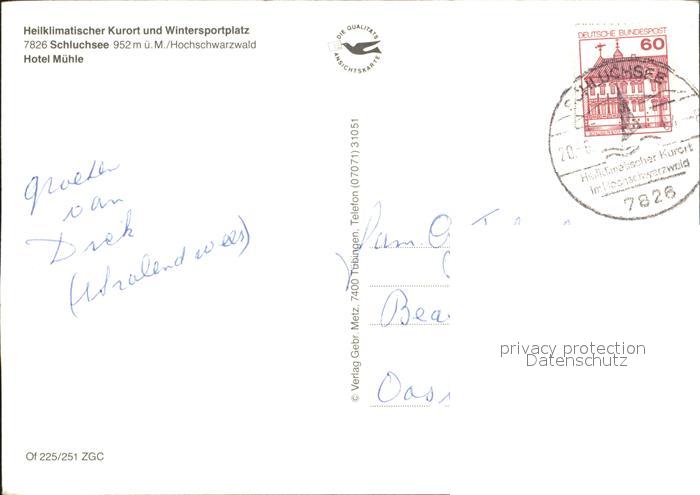 Heilklimatischer Kurort und Wintersportplatz
7826 Schluchsee 952 m ü. M./Hochschwarzwald
Hotel Mühle
DIE QUALITÄTS
ANSICHTSKARTE
DEUTSCHE BUNDESPOST
60
SCHLUCHSEE
20.-6
Heilklimatischer Kurort
im Hochschwarzwald
7826
groeten
van
(stralend weer)
© Verlag Gebr. Metz, 7400 Tübingen, Telefon (07071) 31051
Fam.
Bea
privacy protection
Datenschutz
Of 225/251 ZGC